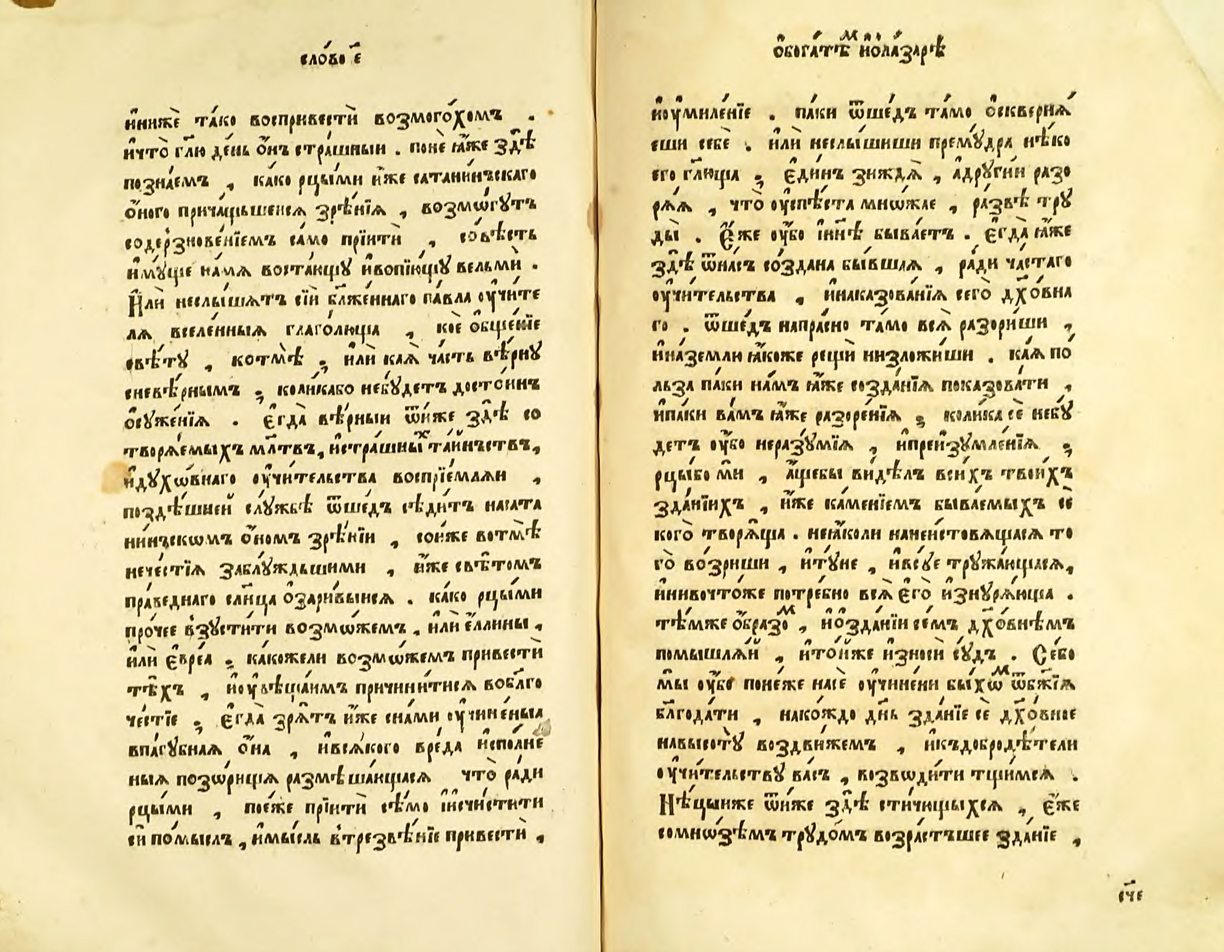 сло́во є҃
и҆нижѐ та́ко воспривестѝ возмого́хомъ .
и҆что̀ гл҃ю де́нь ѻ҆́нъ стра́шныи . поне ꙗ҆́же здѣ̀
позна́емъ , ка́ко рцы́ми и҆́же сатани́нъскаго
ѻ҆́ного прича́щьшеисѧ зрѣ́нїѧ , возмѡ́гутъ
содерзнове́нїемъ са́мо прїитѝ , со́вѣсть
и҆му́щїе на́мѧ воста́ющꙋ и҆вопїю́щꙋ вельмѝ .
И҆лѝ неслы́шатъ сїѝ бл҃же́ннаго па́вла ѹ҆чи́те
лѧ вселе́нныѧ глаго́люща , ко́е ѻ҆бще́нїе
свѣ́тꙋ , котмѣ̀ ; и҆лѝ ка́ѧ ча́сть вѣ́рнꙋ
сневѣ́рнымъ ; коли́кабо небꙋ́детъ досто́инъ
ѻ҆сꙋже́нїѧ . Є҆гда̀ вѣ́рныи ѿи҆́же здѣ̀ со
творѧ́емыхъ мл҃твъ, и҆стра́шныⷯ та́инъствъ,
и҆дꙋхѡ́внаго ѹ҆чи́тельства воспрїе́млѧи ,
поздѣ́шнеи слꙋ́жбѣ ѿше́дъ сѣди́тъ насата
ни́нъскомъ ѻ҆́номъ зрѣ́нїи , сои҆́же вотмѣ̀
нече́стїѧ заблꙋ́ждьшими , и҆́же свѣ́томъ
пра́веднаго сл҃нца ѻ҆зари́выисѧ . ка́ко рцы́ми
про́чее взꙋсти́ти возмо́жемъ , и҆лѝ е҆́ллины ,
и҆лѝ є҆вре́а ; ка́кожели возмо́жемъ привестѝ
тѣ́хъ , и҆ѹ҆вѣща́имъ причини́тисѧ вобл҃го
че́стїе ; є҆гда̀ зрѧ́тъ и҆́же сна́ми ѹ҆чине́ныѧ
впа́гꙋбнаѧ ѻ҆на̀ , и҆всѧ́кого вре́да и҆спо́лне
ныѧ позѡ́рищїѧ размѣ́шающасѧ что̀ ра́ди
рцы́ми , по́еже прїитѝ сѣ́мо и҆и҆счи́стити
си по́мыслъ , и҆мы́сль втрезвѣ́нїе привестѝ ,
ѻ҆бога́тѣⷨ и҆ѻла́зарѣ
и҆ѹ҆миле́нїе . па́ки ѿше́дъ та́мо ѻ҆сквернѧ́
еши себѐ . и҆лѝ неслы́шиши премꙋ́дра нѣ́ко
его гл҃юща ; є҆ди́нъ зи́ждѧ , а҆дрꙋгі́и разо
рѧ́ѧ , что̀ ѹ҆спѣ́ста мно́жае , ра́звѣ трꙋ
ды̀ . Є҆́же ѹ҆́бо і҆нн҃ѣ быва́етъ . є҆гда̀ ꙗ҆́же
здѣ̀ ѿна́съ со́здана бы́вшаѧ , ра́ди ча́стаго
ѹ҆чи́тельства , и҆наказова́нїѧ сего̀ дх҃о́вна
го . ѿше́дъ напра́сно та́мо всѧ̀ разори́ши ,
и҆на́земли ꙗ҆́коже рещѝ низложи́ши . ка́ѧ по́
льза па́ки на́мъ ꙗ҆́же созда́нїѧ показова́ти ,
и҆па́ки ва́мъ ꙗ҆́же разоре́нїѧ ; коли́ка сѐ небꙋ́
детъ ѹ҆́бо неразꙋ́мїѧ , и҆преи҆зꙋмле́нїѧ ;
рцы́бо мѝ , а҆́щебы ви́дѣлъ вси́хъ твои́хъ
зда́нїихъ , и҆́же ка́менїемъ быва́емыхъ сѐ
кого̀ творѧ́ща . неꙗ҆́коли нанеи́стовѧщасѧ то
го̀ во́зриши , и҆тꙋ́не , и҆всꙋ́е трꙋжа́ющасѧ ,
и҆нивочто́же потре́бно всѧ̀ є҆го̀ и҆знꙋрѧ́юща .
тѣ́мже ѻ҆́бразоⷨ , и҆ѻ҆зда́нїи се́мъ дх҃о́внѣмъ
помышлѧ́й , и҆то́и҆же и҆зно́си сꙋ́дъ . Се́бо
мы̀ ѹ҆́бо поне́же на́се ѹ҆чине́ни бы́хѡⷨ ѿбж҃їѧ
бл҃года́ти , нако́ждо дн҃ь зда́нїе сѐ дх҃о́вное
навысотꙋ̀ воздви́жемъ , и҆къдобродѣ́тели
ѹ҆чи́тельствꙋ ва́съ , возвѡди́ти тщи́мсѧ .
Нѣ́цыиже ѿи҆́же здѣ̀ стичи́щыхсѧ , є҆́же
сомно́зѣмъ трꙋдо́мъ возра́стъшее зда́нїе ,
сч҃е